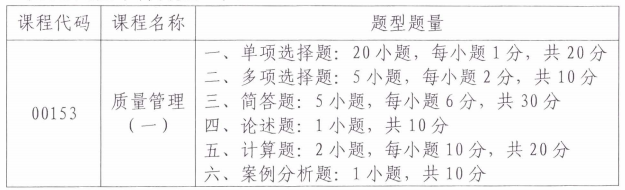 课程代码 课程名称 题型题量
一、单项选择题：20小题，每小题1分，共20分
二、多项选择题：5小题，每小题2分，共10分
00153 质量管理（一） 三、简答题：5小题，每小题6分，共30分
四、论述题：1小题，共10分
五、计算题：2小题，每小题10分，共20分
六、案例分析题：1小题，共10分